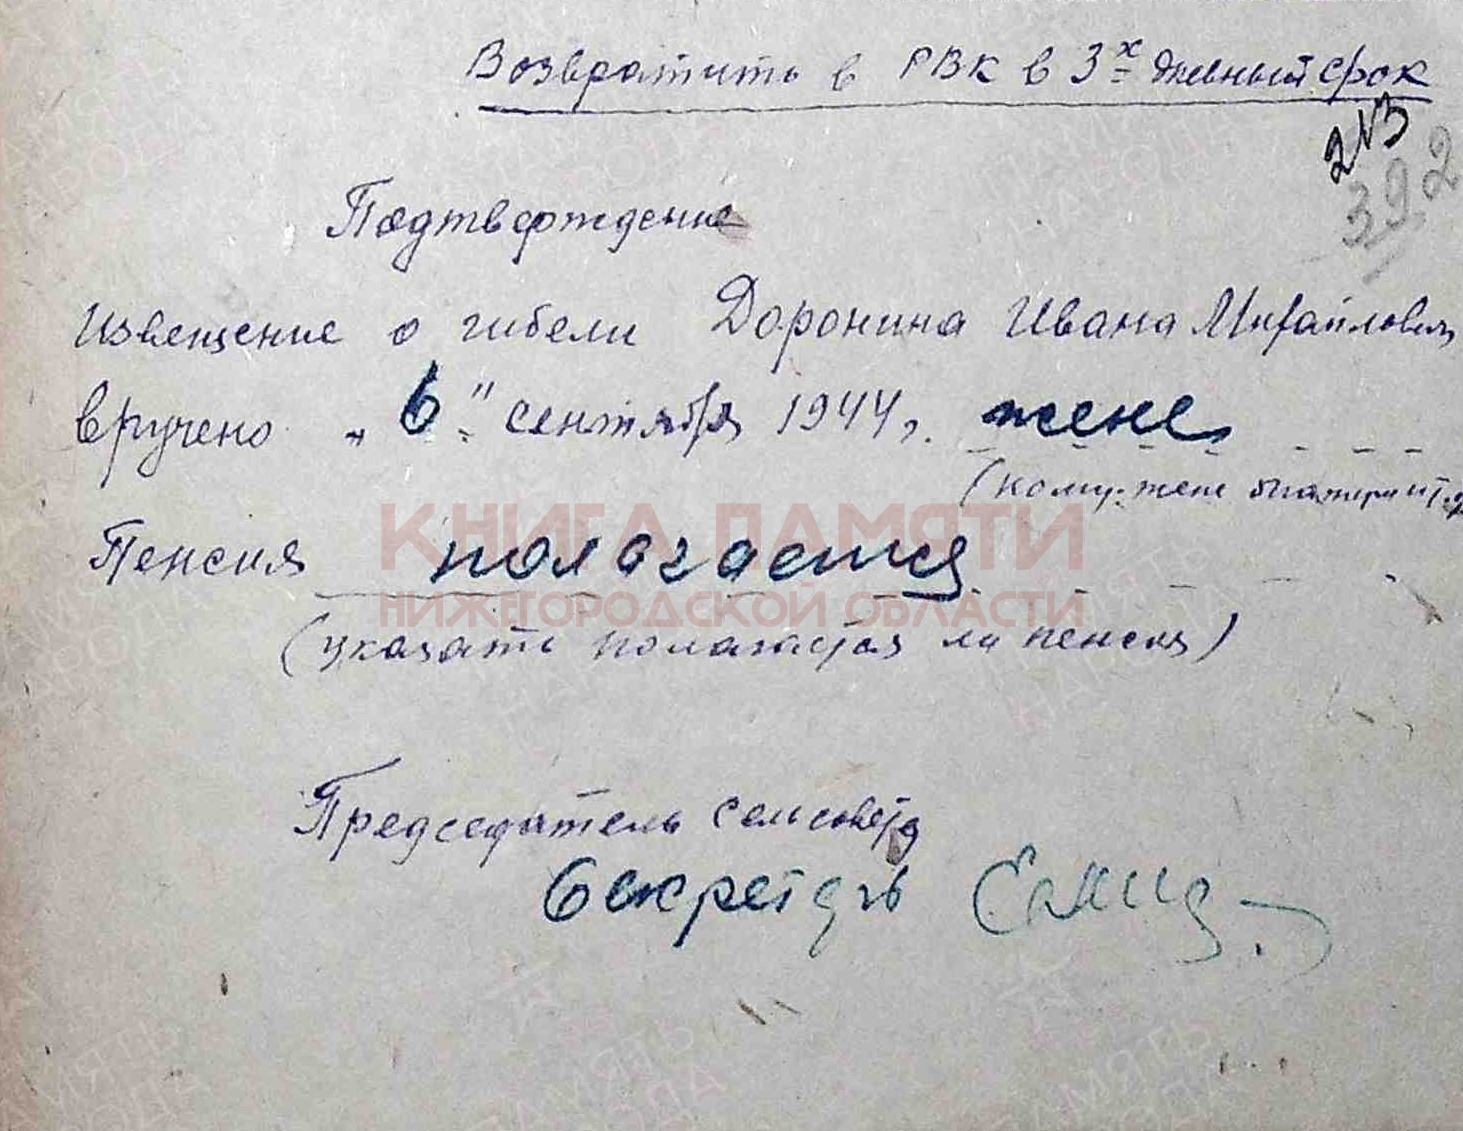 Возвратить в РВК в 3х дневный срок
213
392
Подтверждение
Извещение о гибели Доронина Ивана Михайлович
вручено „6" сентября 1944 г. жене
(кому: жене
Пенсия полагается
(указать полагается ли пенсия)
Председатель сельсовета
Секретарь
КНИГА ПАМЯТИ
НИЖЕГОРОДСКОЙ ОБЛАСТИ